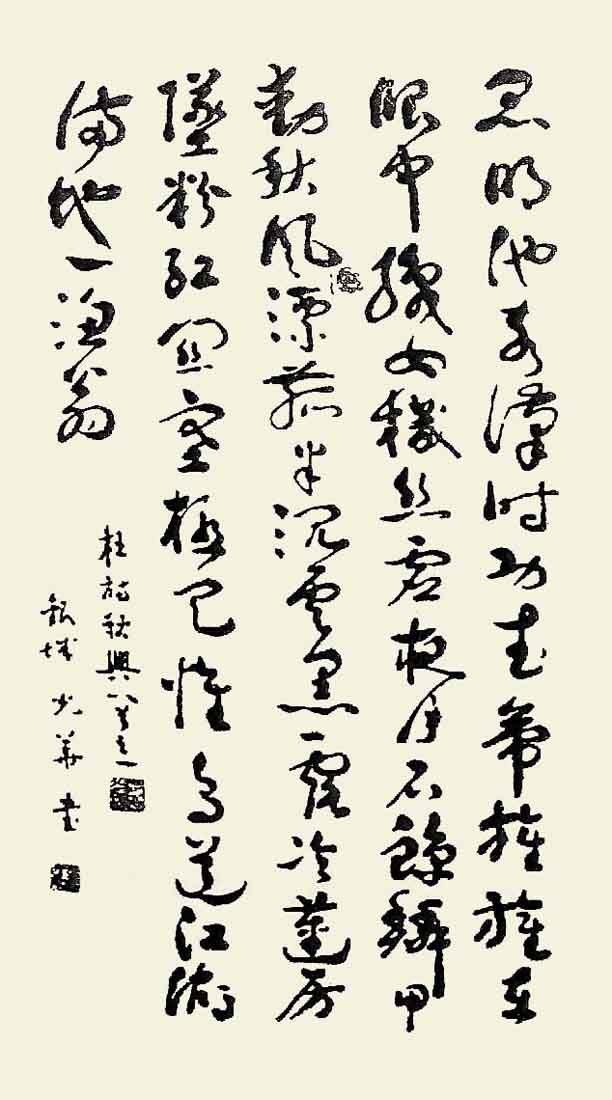 昆明池水漢时功武帝旌旗在
眼中織女機丝虛夜月石鯨鱗甲
動秋風漂菰米沉雲黑露冷蓮房
墜粉紅関塞極天惟鳥道江湖
滿地一漁翁
杜詩秋興八首之一
華書